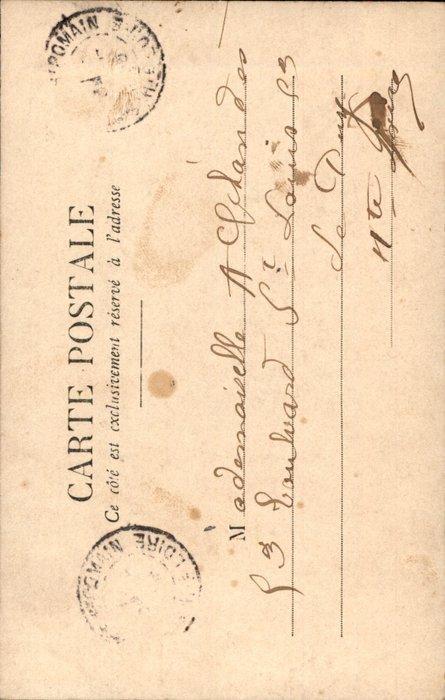 CARTE POSTALE
Ce côté est exclusivement réservé à l'adresse
Mademoiselle A
53 Boulvard St Louis 53
Le Puy
Hte Loire
ROMAIN
HTE LOIRE
ROMAIN
LOIRE